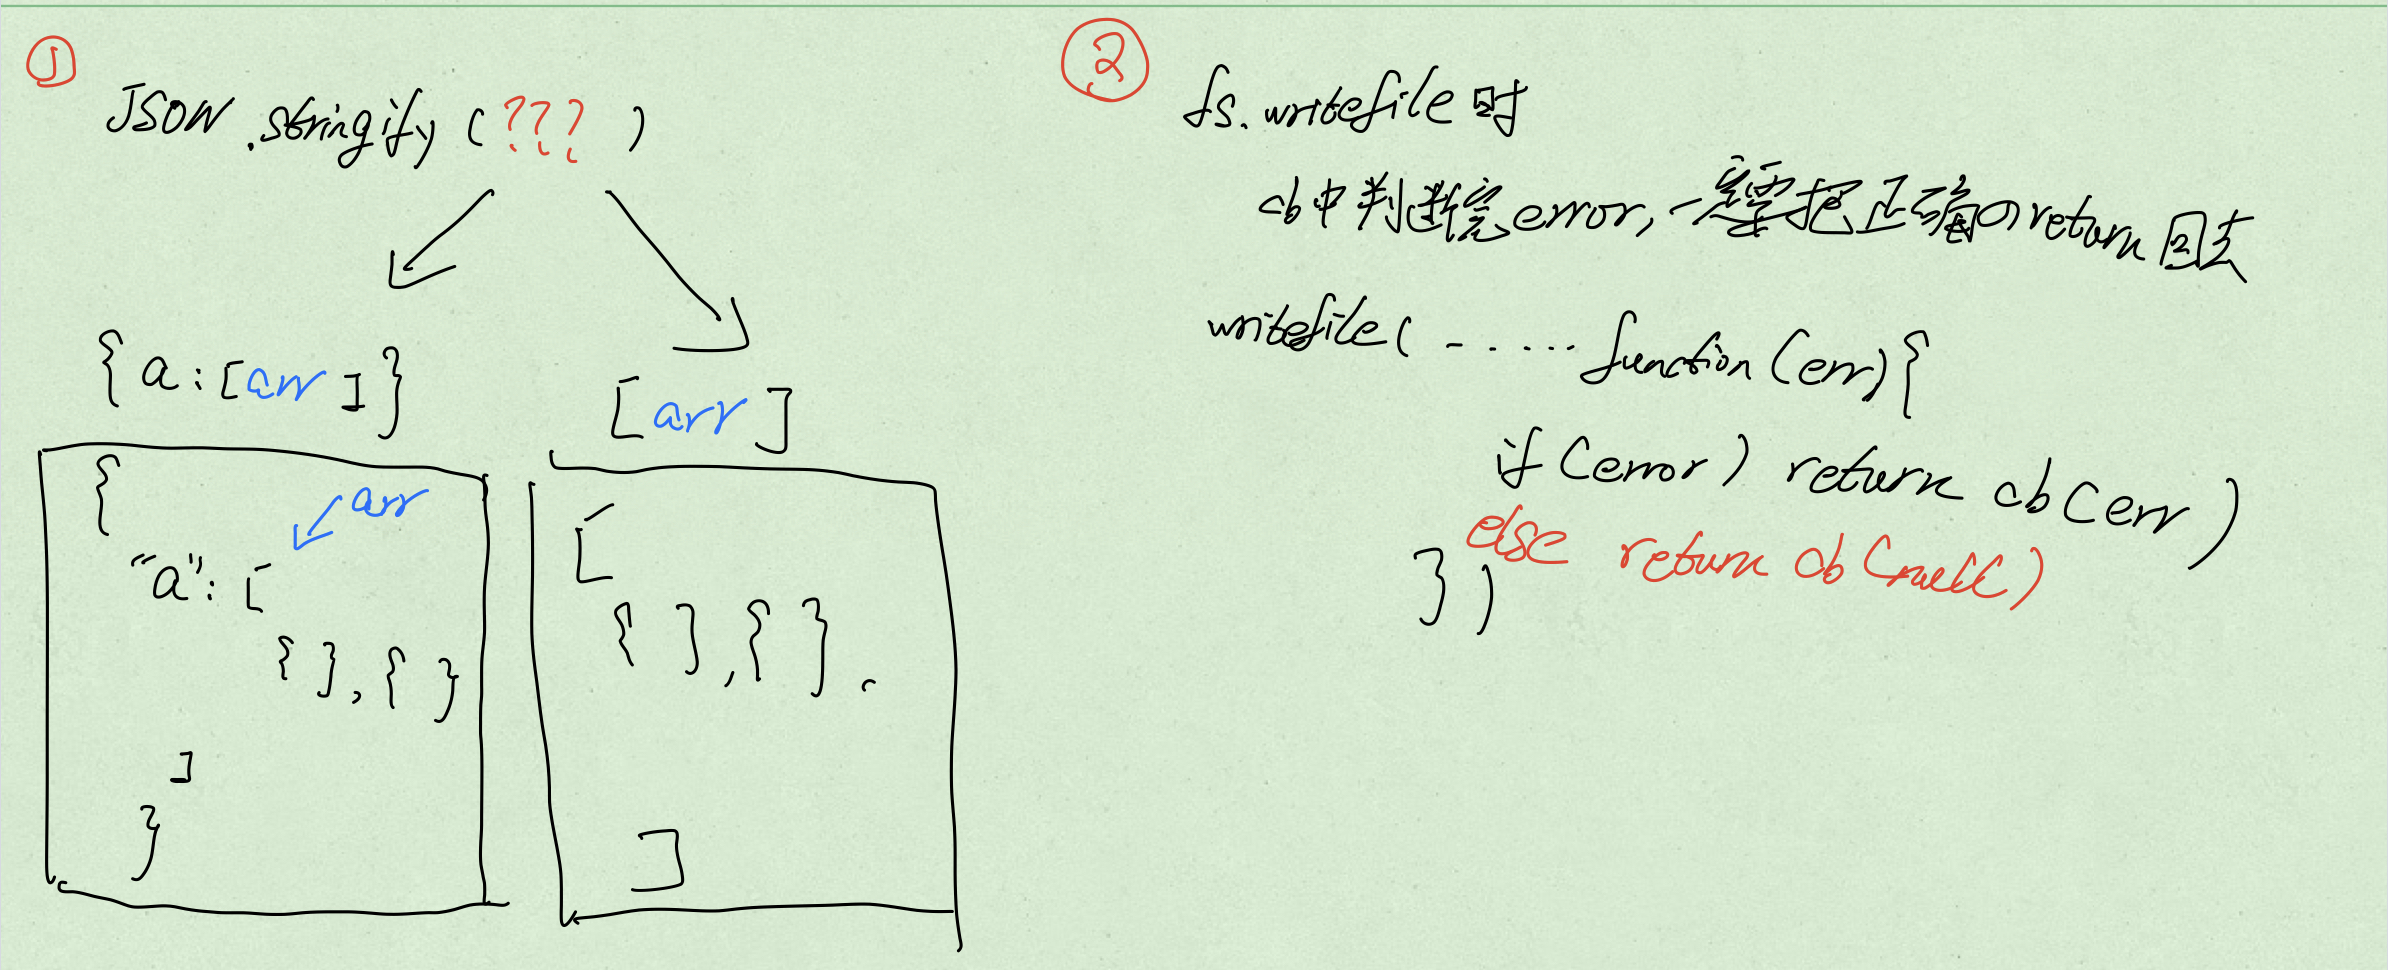 ①
JSON.stringify(???)
{a:[arr]}
[arr]
{
arr
"a":[
{ },{ }
]
}
[
{ ],{ }.
]
②
fs.writefile时
cb中判断完error,一定要把正确のreturn回去
writefile(- ..... function(err){
if(error) return cb(err)
else return cb(null)
})